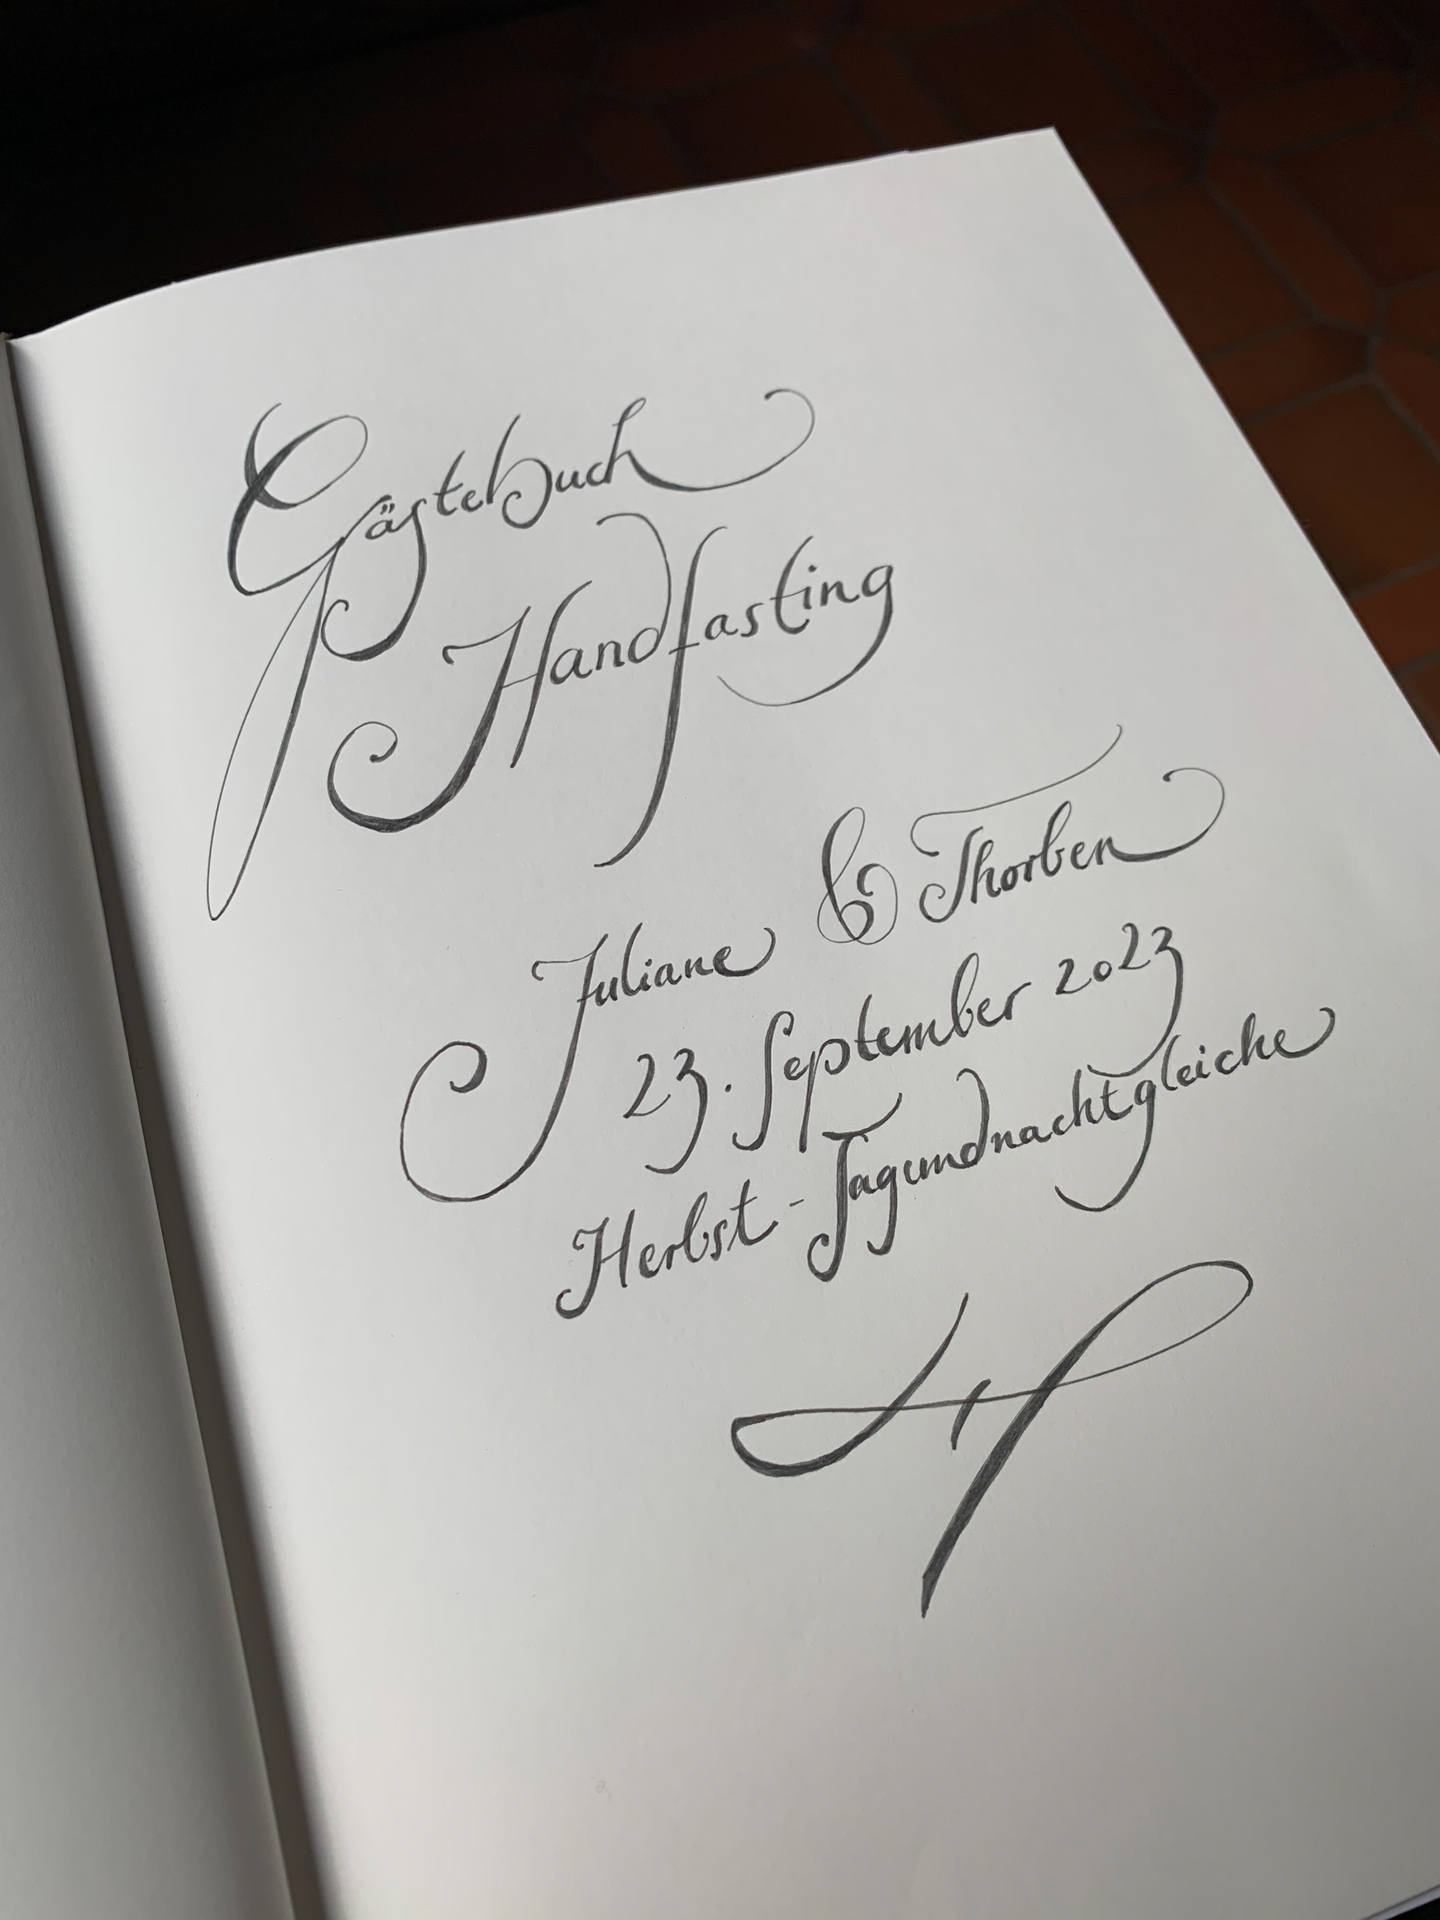 Gästebuch
Handfasting
Juliane & Thorben
23. September 2023
Herbst-Tagundnachtgleiche